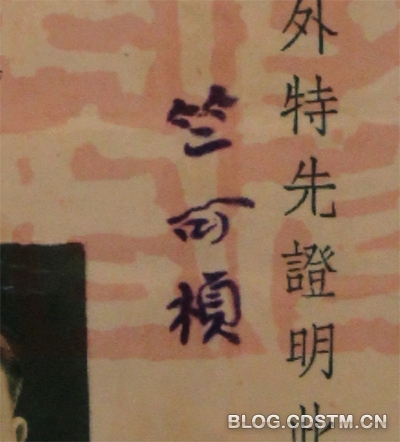 外特先證明此
竺可楨
BLOG.CDSTM.CN